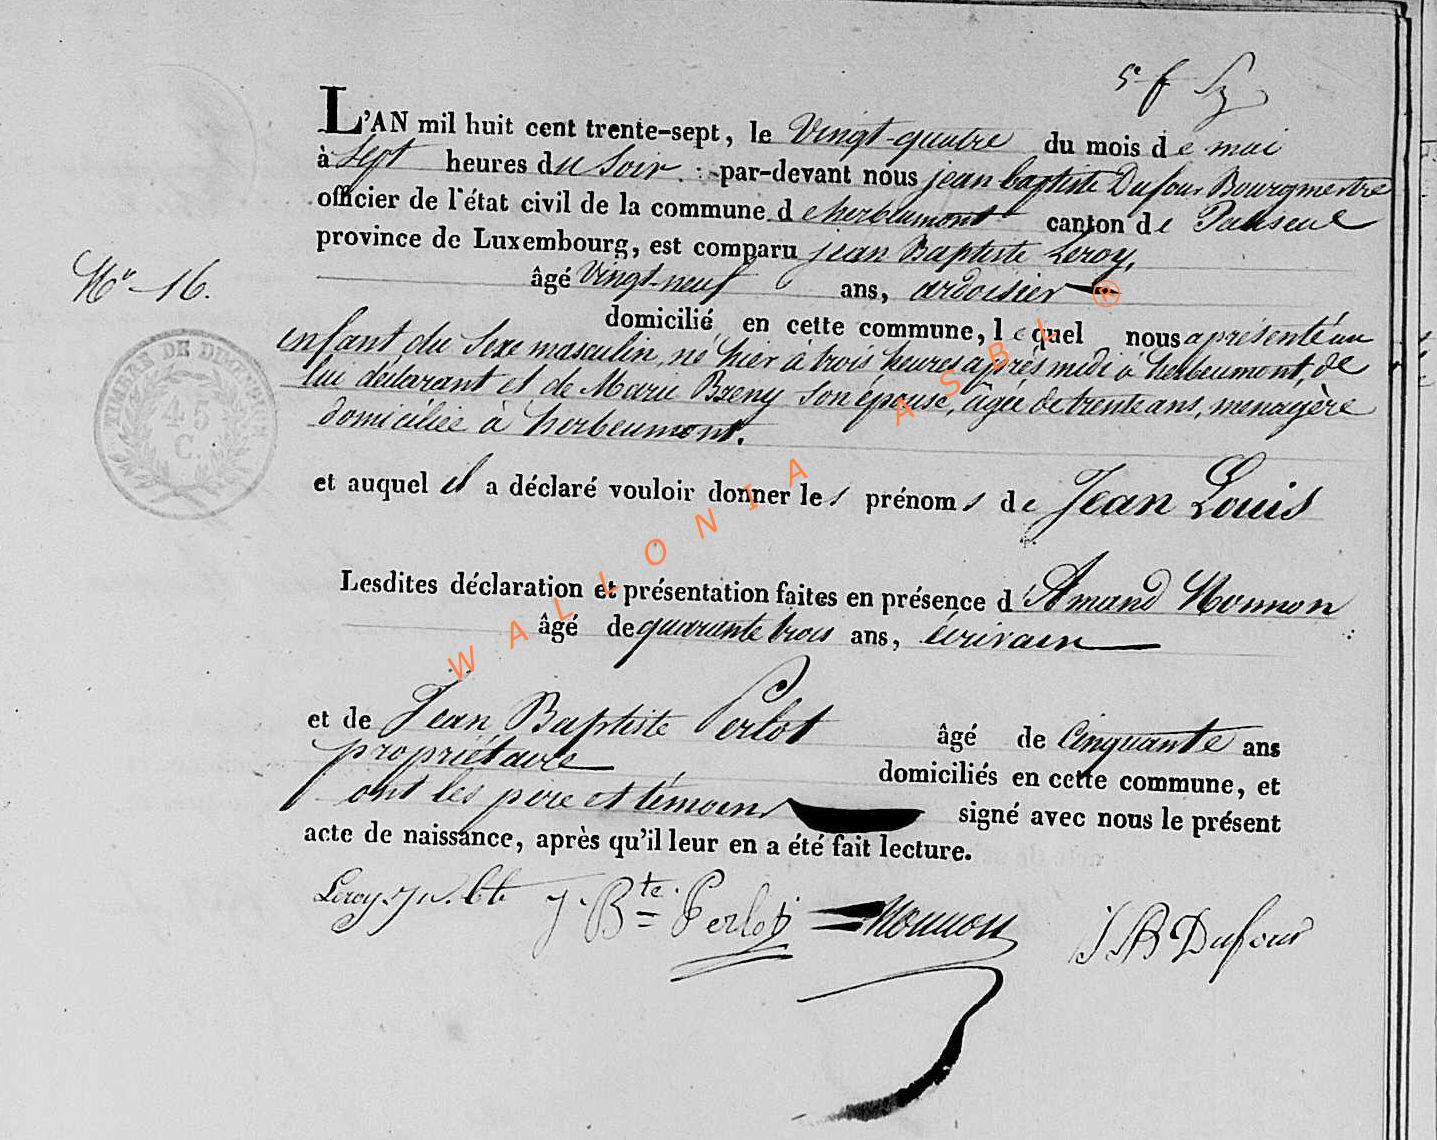 5e f
L'AN mil huit cent trente-sept, le Vingt-quatre du mois de mai
à Sept heures du Soir par-devant nous jean baptiste Dufour Bourgmestre
officier de l'état civil de la commune de herbeumont canton de Paliseul
province de Luxembourg, est comparu jean Baptiste Leroy,
N° 16.
âgé Vingt-neuf ans, ardoisier
domicilié en cette commune, lequel nous a présenté un
enfant du Sexe masculin, né hier à trois heures après midi à herbeumont, de
lui déclarant et de Marie Bzeny Son épouse, âgée de trente ans, menagère
domiciliée à herbeumont.
TIMBRE DE DIMENSION
45
C.
et auquel il a déclaré vouloir donner les prénoms de Jean Louis
Lesdites déclaration et présentation faites en présence d'Amand Monnon
âgé de quarante trois ans, écrivain
et de Jean Baptiste Perlot âgé de Cinquante ans
propriétaire domiciliés en cette commune, et
ont les pere et témoins signé avec nous le présent
acte de naissance, après qu'il leur en a été fait lecture.
Leroy J. Bte J. Bte. Perlot Monnon JB Dufour
WALLONIA ASBL ®